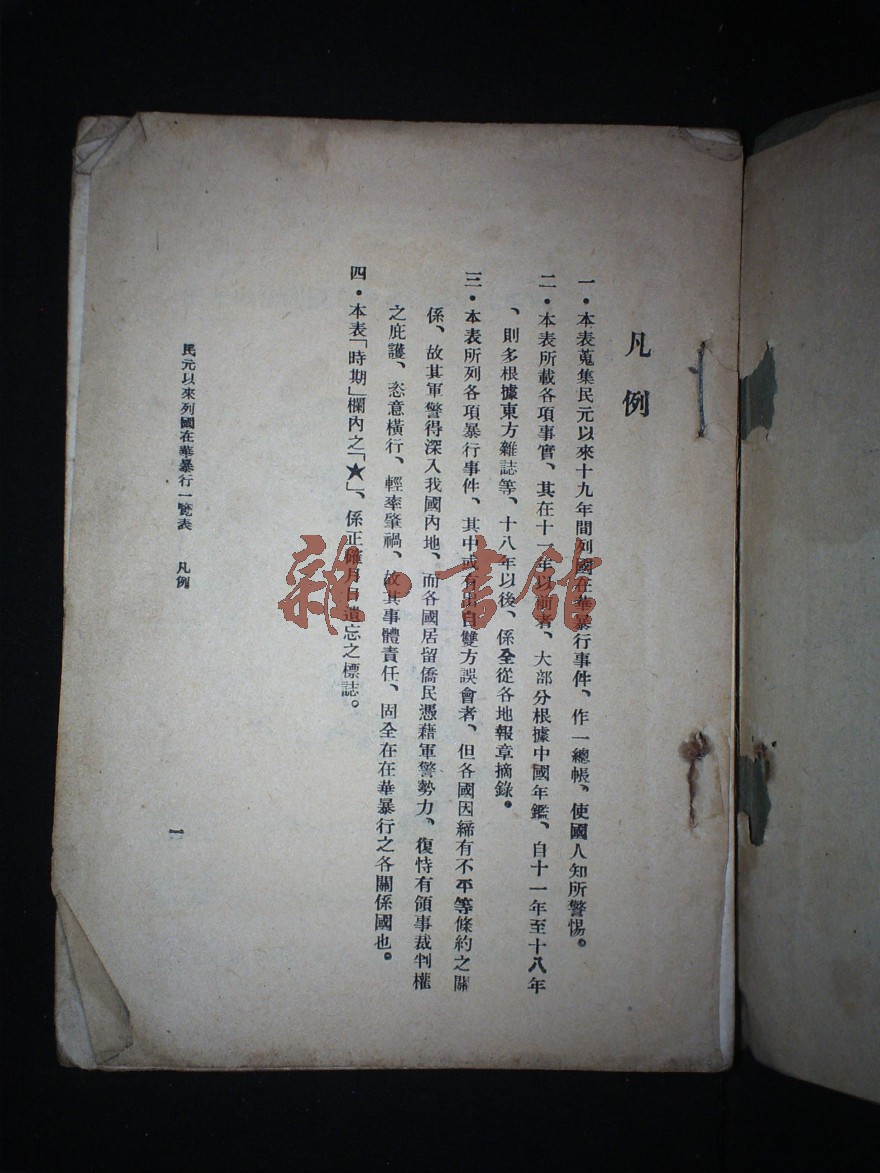 凡例
一．本表蒐集民元以來十九年間列國在華暴行事件、作一總帳、使國人知所警惕。
二．本表所載各項事實、其在十一年以前者、大部分根據中國年鑑、自十一年至十八年
、則多根據東方雜誌等、十八年以後、係全從各地報章摘錄。
三．本表所列各項暴行事件、其中或有出自雙方誤會者、但各國因締有不平等條約之關
係、故其軍警得深入我國內地、而各國居留僑民憑藉軍警勢力、復恃有領事裁判權
之庇護、恣意橫行、輕率肇禍、故其事體責任、固全在在華暴行之各關係國也。
四．本表「時期」欄內之「★」、係正確月日遺忘之標誌。
民元以來列國在華暴行一覽表 凡例
一
雜·書館